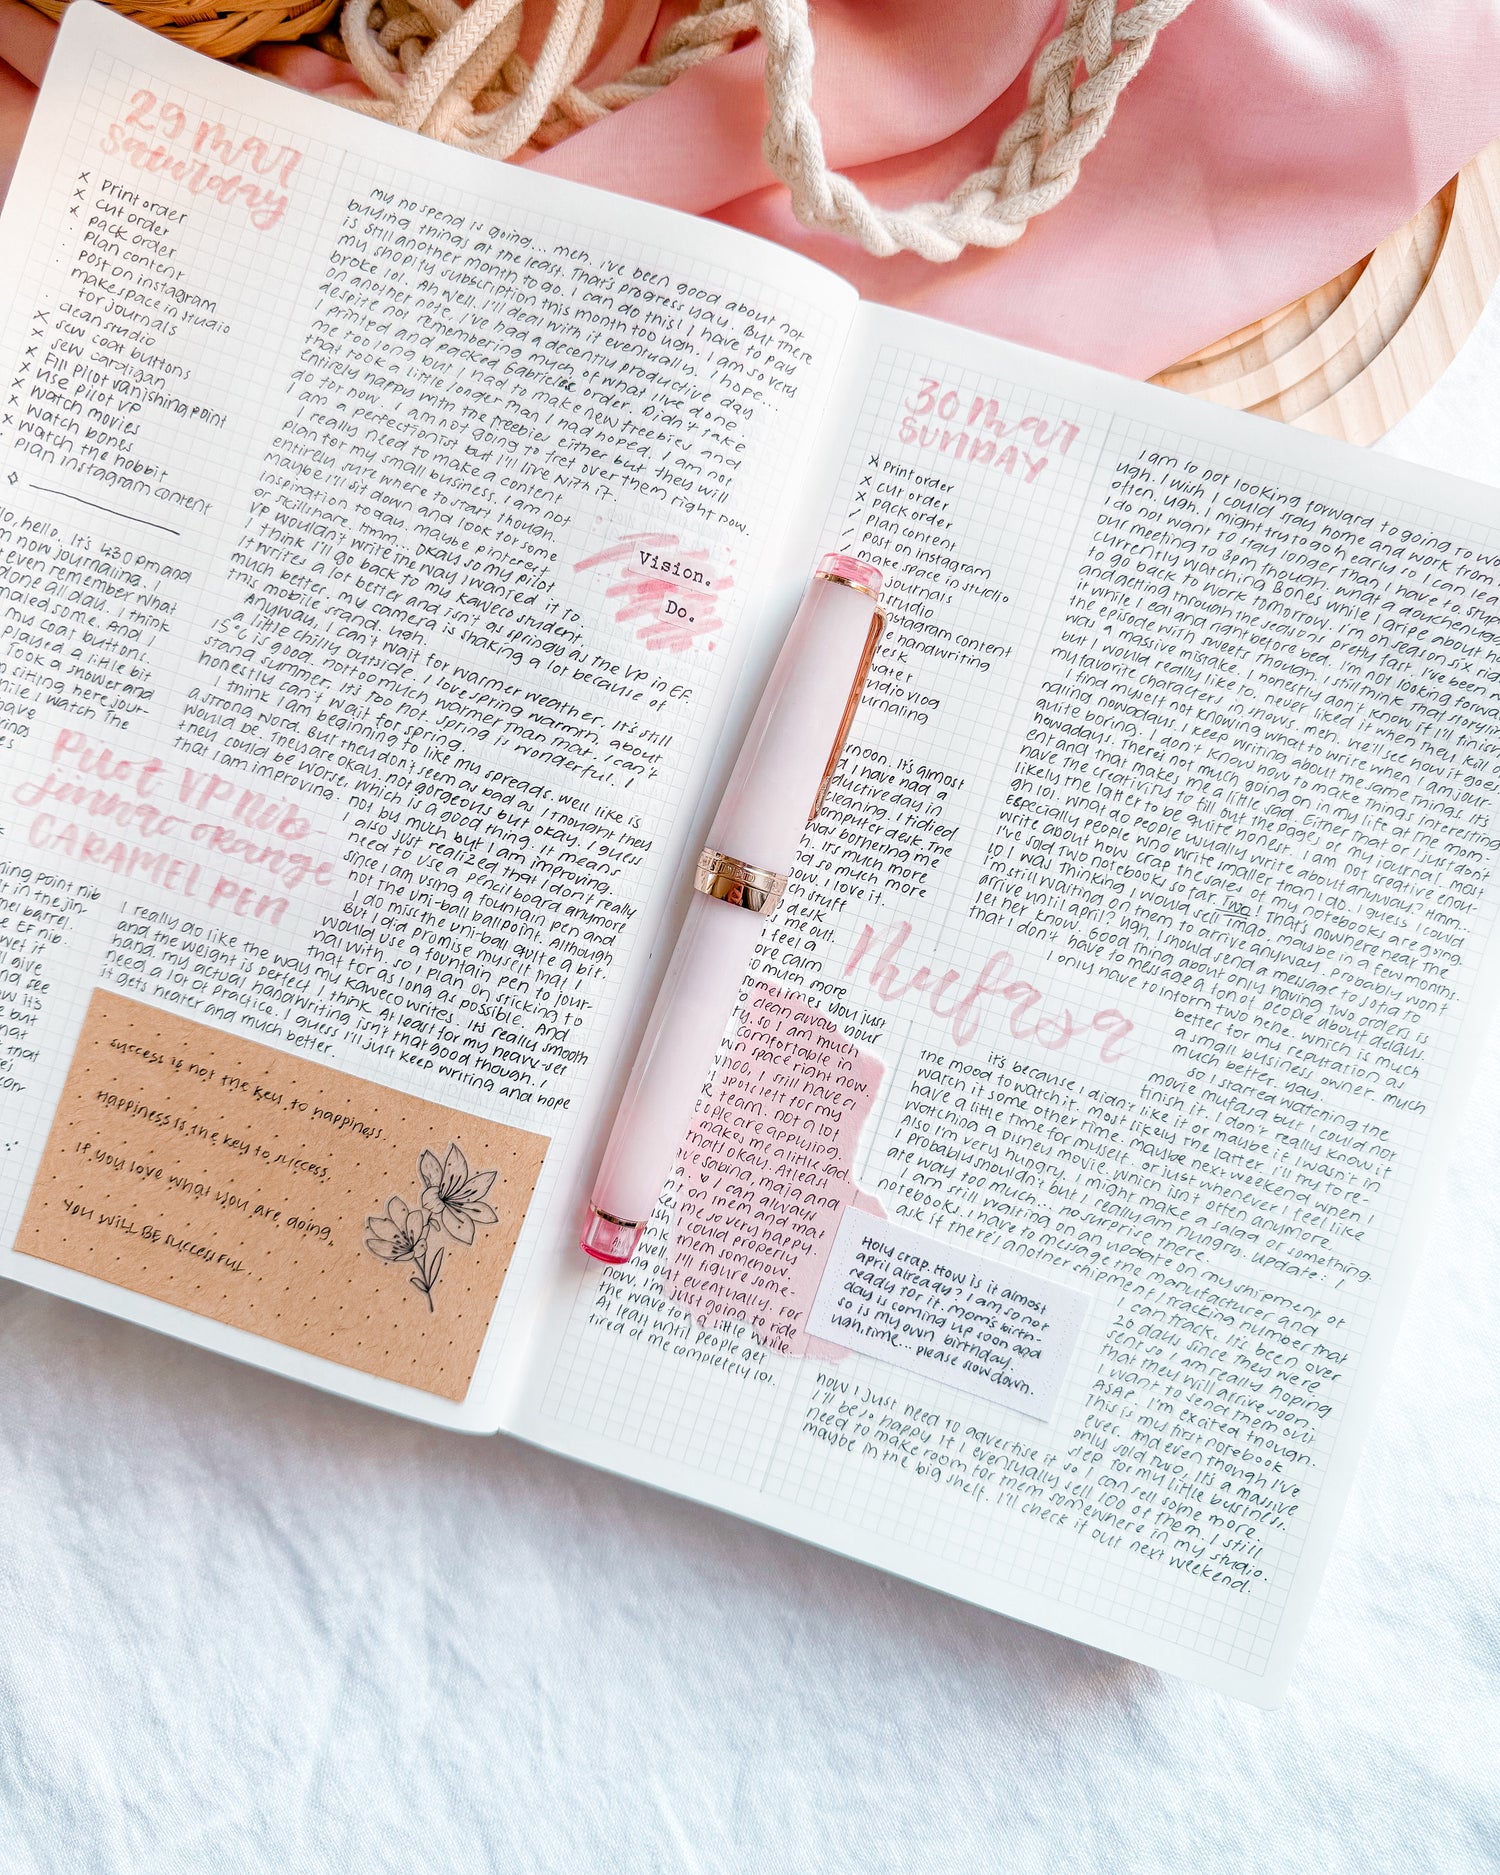 29 mar
Saturday
x Print order
x cut order
x pack order
· plan content
· post on instagram
· make space in studio
for journals
· clean studio
x sew coat buttons
x sew cardigan
x Fill Pilot vanishing point
x use Pilot VP
x watch movies
x watch bones
x watch the hobbit
· plan instagram content
hello, hello. It's 4:30 pm and
now journaling. I
even remember what
done all day. I think
some. And I
my coat buttons.
played a little bit
Took a shower and
sitting here jour-
while I watch The
have
Pilot VP Nib -
jinhao orange
CARAMEL PEN
point nib
in the jin-
barrel.
EF nib.
wet it
give
and see
how it's
but
what
that
my no spend is going... meh. I've been good about not
buying things at the least. That's progress yay. But there
is still another month to go. I can do this! I have to pay
my shopify subscription this month too ugh. I am so very
broke lol. Ah well. I'll deal with it eventually. I hope...
on another note, I've had a decently productive day
despite not remembering much of what I've done.
I printed and packed Gabrielle's order. Didn't take
me too long but I had to make new freebies and
that took a little longer than I had hoped. I am not
entirely happy with the freebies either but they will
do for now. I am not going to fret over them right now.
I am a perfectionist but I'll live with it.
I really need to make a content
plan for my small business. I am not
entirely sure where to start though.
Maybe I'll sit down and look for some
inspiration today. maybe pinterest
or skillshare. Hmm... okay so my pilot
VP wouldn't write the way I wanted it to.
I think I'll go back to my kaweco student.
It writes a lot better and isn't as springy as the VP in EF.
much better. my camera is shaking a lot because of
this mobile stand. ugh.
Anyway, I can't wait for warmer weather. It's still
a little chilly outside. I love spring warmth. about
15°C is good. not too much warmer than that. I can't
stand summer. It's too hot. Spring is wonderful. I
honestly can't wait for spring.
I think I am beginning to like my spreads. well like is
a strong word. But they don't seem as bad as I thought they
would be. They are okay. not gorgeous but okay. I guess
they could be worse, which is a good thing. It means
that I am improving. not by much but I am improving.
I also just realized that I don't really
need to use a pencil board anymore
since I am using a fountain pen and
not the uni-ball ballpoint. Although
I do miss the uni-ball quite a bit.
But I did promise myself that I
would use a fountain pen to jour-
nal with, so I plan on sticking to
that for as long as possible. And
I really do like the way my Kaweco writes. It's really smooth
and the weight is perfect I think. At least for my heavy-set
hand. my actual handwriting isn't that good though. I
need a lot of practice. I guess I'll just keep writing and hope
it gets neater and much better.
Vision.
Do.
success is not the key to happiness.
Happiness is the key to success.
If you love what you are doing,
YOU WILL BE successful.
30 mar
SUNDAY
x Print order
x cut order
x pack order
/ plan content
/ Post on Instagram
/ make space in studio
journals
studio
instagram content
handwriting
desk
water
studio vlog
journaling
It's almost
I have had a
productive day in
cleaning. I tidied
computer desk. The
was bothering me
It's much more
and so much more
now. I love it.
stuff
desk
me out.
I feel a
more calm
so much more
sometimes you just
to clean away your
so I am much
comfortable in
own space right now.
I still have a
spots left for my
team. not a lot
people are applying.
makes me a little sad.
that's okay. At least
have sabina, maja and
♥ I can always
on them and that
me so very happy.
I could properly
them somehow.
well. I'll figure some-
thing out eventually. For
now, I'm just going to ride
the wave for a little while.
At least until people get
tired of me completely lol.
I am so not looking forward to going to
ugh. I wish I could stay home and work from
often. ugh. I might try to go in early so I can
I do not want to stay longer than I have to.
our meeting to 3pm though. what a
currently watching Bones while I gripe about
to go back to work tomorrow. I'm on season six
and getting through the seasons pretty fast. I've been
it while I eat and right before bed. I'm not looking forward
the episode with sweets though. I still think that
was a massive mistake. I honestly don't know if I'll finish
but I would really like to. never liked it when they kill
my favorite characters in shows. meh. we'll see how it goes.
I find myself not knowing what to write when I am jour-
naling nowadays. I keep writing about the same things. It's
quite boring. I don't know how to make things interesting
nowadays. There's not much going on in my life at the mom-
ent and that makes me a little sad. Either that or I just don't
have the creativity to fill out the pages of my journal. most
likely the latter to be quite honest. I am not creative enou-
gh lol. what do people usually write about anyway? Hmm...
Especially people who write smaller than I do. I guess I could
write about how crap the sales of my notebooks are going.
I've sold two notebooks so far. Two! That's nowhere near the
10 I was thinking I would sell lmao. maybe in a few months.
I'm still waiting on them to arrive anyway. Probably won't
arrive until april? Ugh. I should send a message to sofia to
let her know. Good thing about only having two orders is
that I don't have to message a ton of people about delays.
I only have to inform two hehe. which is much
better for my reputation as
a small business owner. much
much better. yay.
Mufasa
so I started watching the
movie mufasa but I could not
finish it. I don't really know if
it's because I didn't like it or maybe I wasn't in
the mood to watch it. most likely the latter. I'll try to re-
watch it some other time. maybe next weekend when I
have a little time for myself. or just whenever I feel like
watching a Disney movie. which isn't often anymore.
Also I'm very hungry. I might make a salad or something.
I probably shouldn't but I really am hungry. update: I
ate way too much... no surprise there.
I am still waiting on an update on my shipment of
notebooks. I have to message the manufacturer and
ask if there's another shipment / tracking number that
I can track. It's been over
20 days since they were
sent so I am really hoping
that they will arrive soon.
I want to send them out
ASAP. I'm excited though.
This is my first notebook
ever. And even though I've
only sold two, it's a massive
step for my little business.
Holy crap. How is it almost
april already? I am so not
ready for it. mom's birth-
day is coming up soon and
so is my own birthday.
ugh, time... please slow down.
now I just need to advertise it so I can sell some more.
I'll be so happy if I eventually sell 100 of them. I still
need to make room for them somewhere in my studio.
maybe in the big shelf. I'll check it out next weekend.